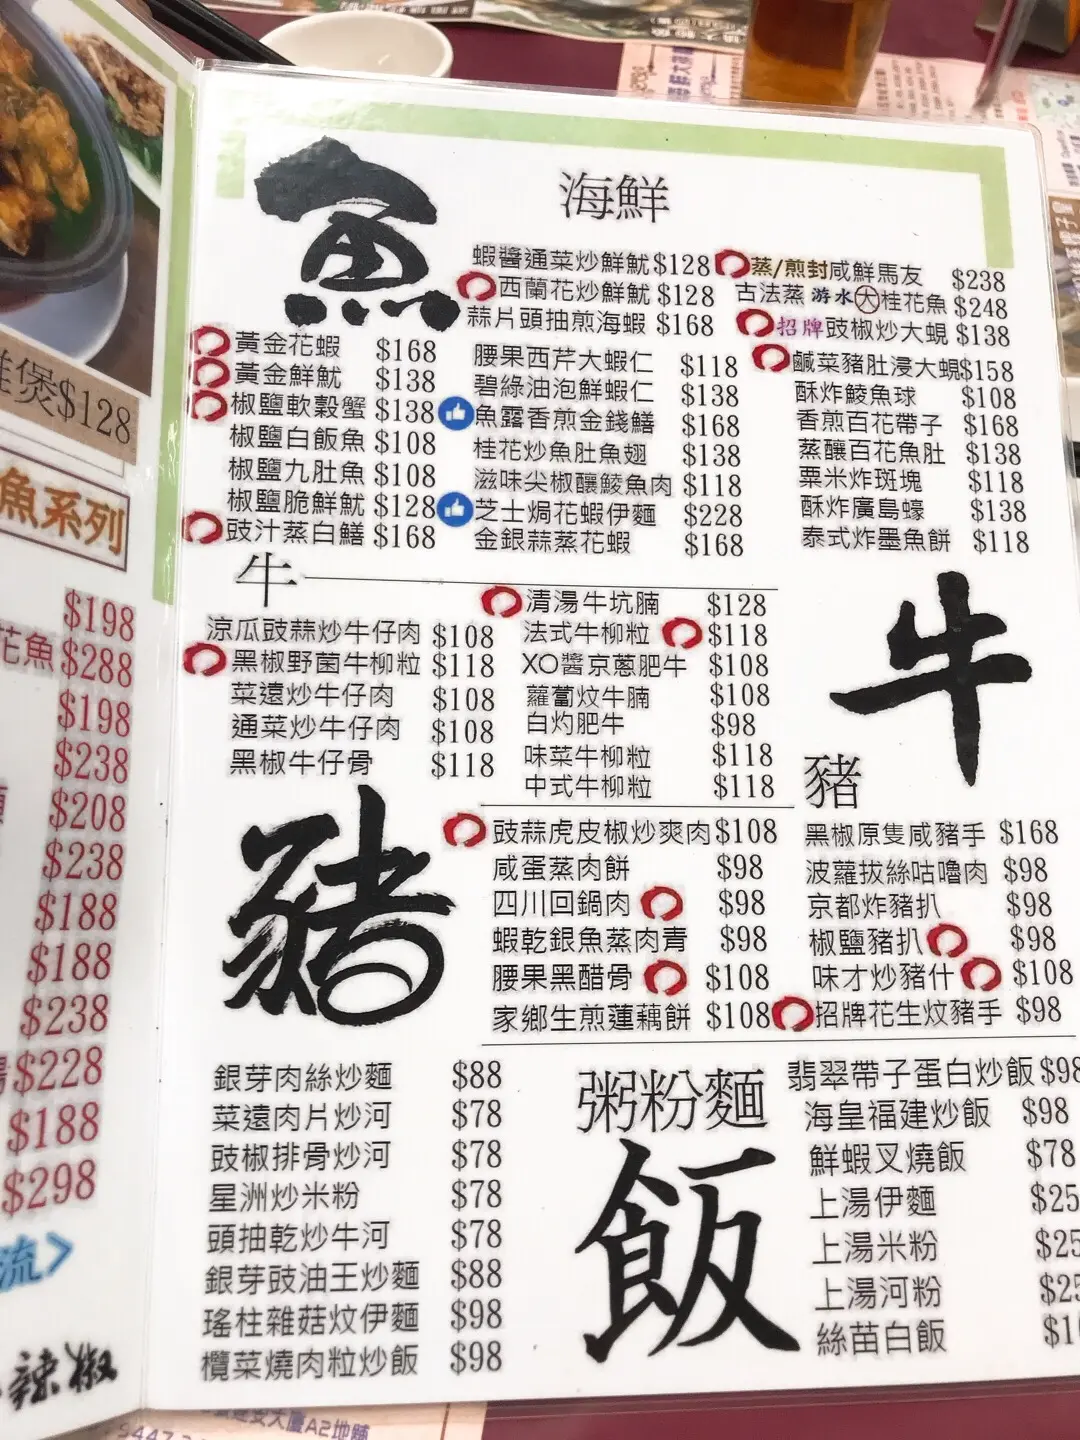 魚
海鮮
蝦醬通菜炒鮮魷 $128
西蘭花炒鮮魷 $128
蒜片頭抽煎海蝦 $168
蒸/煎封咸鮮馬友 $238
古法蒸 游水大桂花魚 $248
招牌豉椒炒大蜆 $138
鹹菜豬肚浸大蜆 $158
黃金花蝦 $168
黃金鮮魷 $138
椒鹽軟殼蟹 $138
椒鹽白飯魚 $108
椒鹽九肚魚 $108
椒鹽脆鮮魷 $128
豉汁蒸白鱔 $168
腰果西芹大蝦仁 $118
碧綠油泡鮮蝦仁 $138
魚露香煎金錢鱔 $168
桂花炒魚肚魚翅 $138
滋味尖椒釀鯪魚肉 $118
芝士焗花蝦伊麵 $228
金銀蒜蒸花蝦 $168
酥炸鯪魚球 $108
香煎百花帶子 $168
蒸釀百花魚肚 $138
粟米炸斑塊 $118
酥炸廣島蠔 $138
泰式炸墨魚餅 $118
牛
涼瓜豉蒜炒牛仔肉 $108
黑椒野菌牛柳粒 $118
菜遠炒牛仔肉 $108
通菜炒牛仔肉 $108
黑椒牛仔骨 $118
清湯牛坑腩 $128
法式牛柳粒 $118
XO醬京蔥肥牛 $108
蘿蔔炆牛腩 $108
白灼肥牛 $98
味菜牛柳粒 $118
中式牛柳粒 $118
牛
豬
豬
豉蒜虎皮椒炒爽肉 $108
咸蛋蒸肉餅 $98
四川回鍋肉 $98
蝦乾銀魚蒸肉青 $98
腰果黑醋骨 $108
家鄉生煎蓮藕餅 $108
黑椒原隻咸豬手 $168
波蘿拔絲咕嚕肉 $98
京都炸豬扒 $98
椒鹽豬扒 $98
味才炒豬什 $108
招牌花生炆豬手 $98
銀芽肉絲炒麵 $88
菜遠肉片炒河 $78
豉椒排骨炒河 $78
星洲炒米粉 $78
頭抽乾炒牛河 $78
銀芽豉油王炒麵 $88
瑤柱雜菇炆伊麵 $98
欖菜燒肉粒炒飯 $98
粥粉麵
飯
翡翠帶子蛋白炒飯 $98
海皇福建炒飯 $98
鮮蝦叉燒飯 $78
上湯伊麵 $25
上湯米粉 $25
上湯河粉 $25
絲苗白飯
煲 $128
魚系列
$198
花魚 $288
$198
$238
$208
$238
$188
$188
$238
$228
$188
$298
流
辣椒
A2地舖